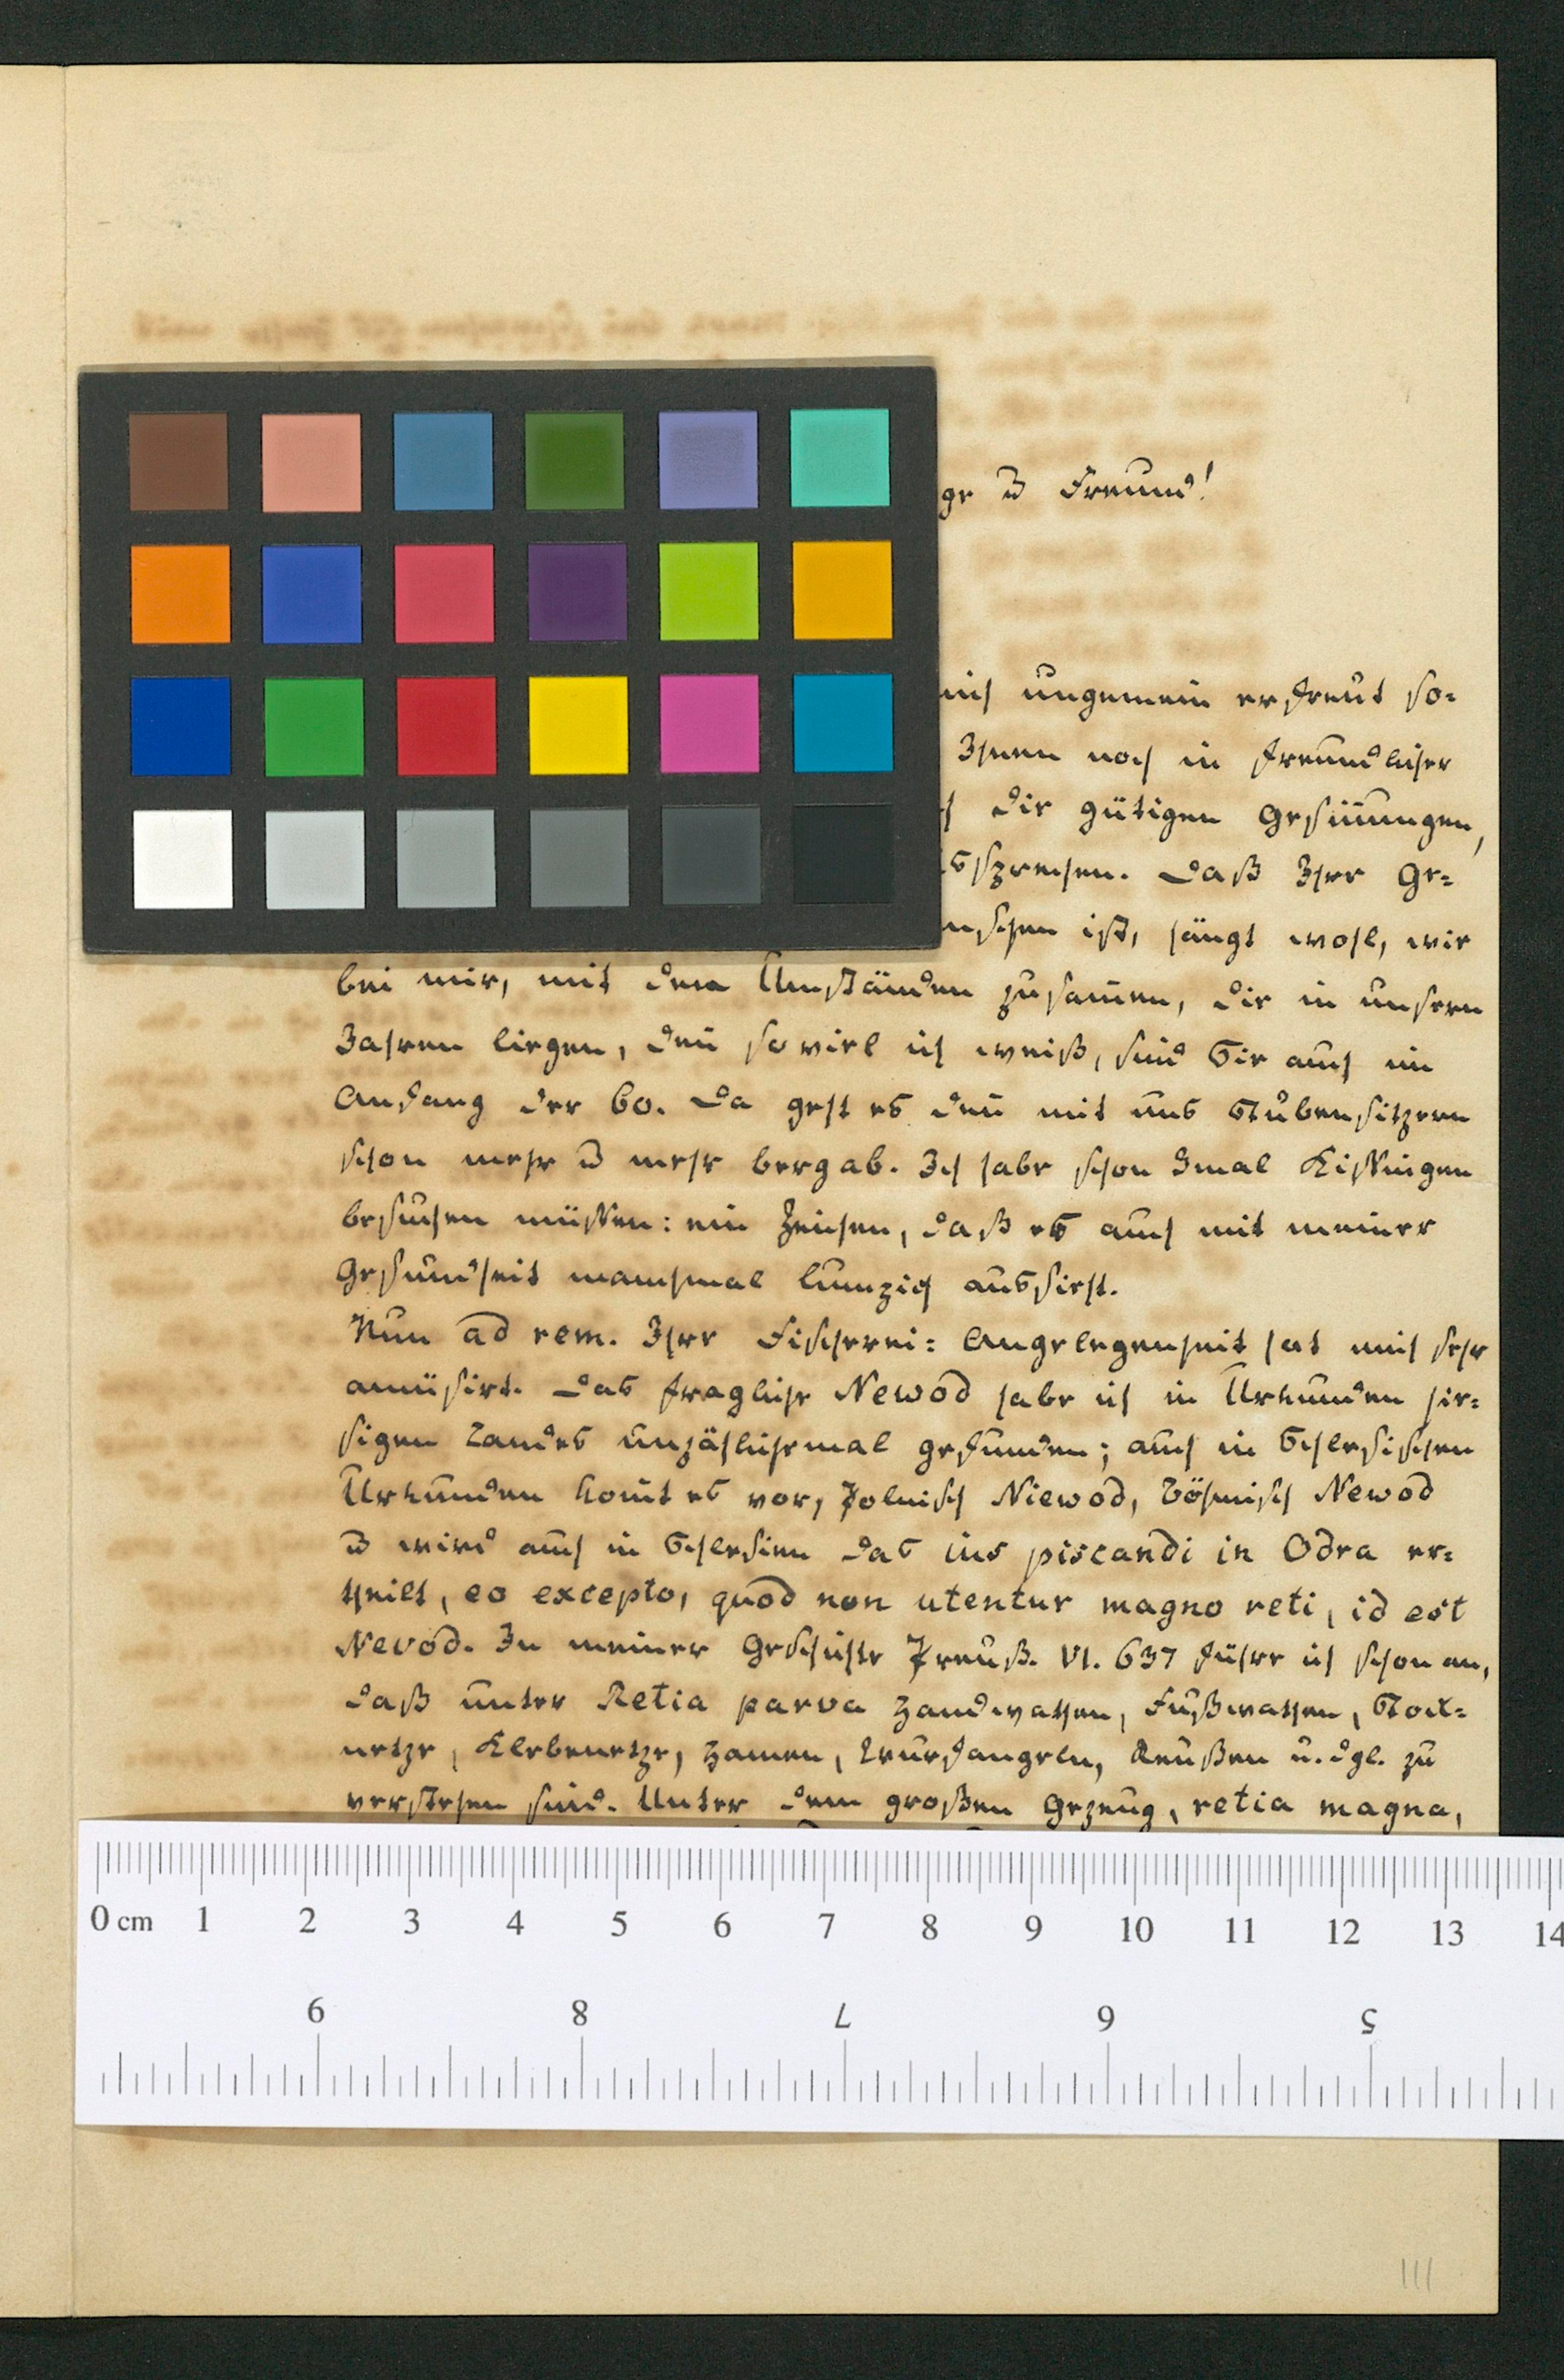 ge u Freund!
mich ungemein erfreut so=
Ihnen noch in freundlicher
die gütigen Gesin̄ungen,
ussprechen. Daß Ihre Ge=
nschen ist, hängt wohl, wie
bei mir, mit den Umständen zusam̄en, die in unsern
Jahren liegen, den̄ so viel ich weiß, sind Sie auch im
Anfang der 60. Da geht es den̄ mit uns Stubensitzern
schon mehr u mehr bergab. Ich habe schon 3mal Kissingen
besuchen müssen: ein Zeichen, daß es auch mit meiner
Gesundheit manchmal lumpig aussieht.
Nun ad rem. Ihre Fischerei= Angelegenheit hat mich sehr
amüsirt. Das fragliche Newod habe ich in Urkunden hie=
sigen Landes unzählichemal gefunden; auch in Schlesischen
Urkunden kom̄t es vor, Polnisch Niewod, Böhmisch Newod
u wird auch in Schlesien das ius piscandi in Odra er=
theilt, eo excepto, quod non utentur magno reti, id est
Nevod. In meiner Geschichte Preuß. VI. 637 führe ich schon an,
daß unter Retia parva Handwathen, Fußwathen, Stock=
netze, Klebenetze, Hamen, Wurfangeln, Reußen u. dgl. zu
verstehen sind. Unter dem großen Gezeug, retia magna,
0 cm 1 2 3 4 5 6 7 8 9 10 11 12 13 14
9 8 7 6 5
III